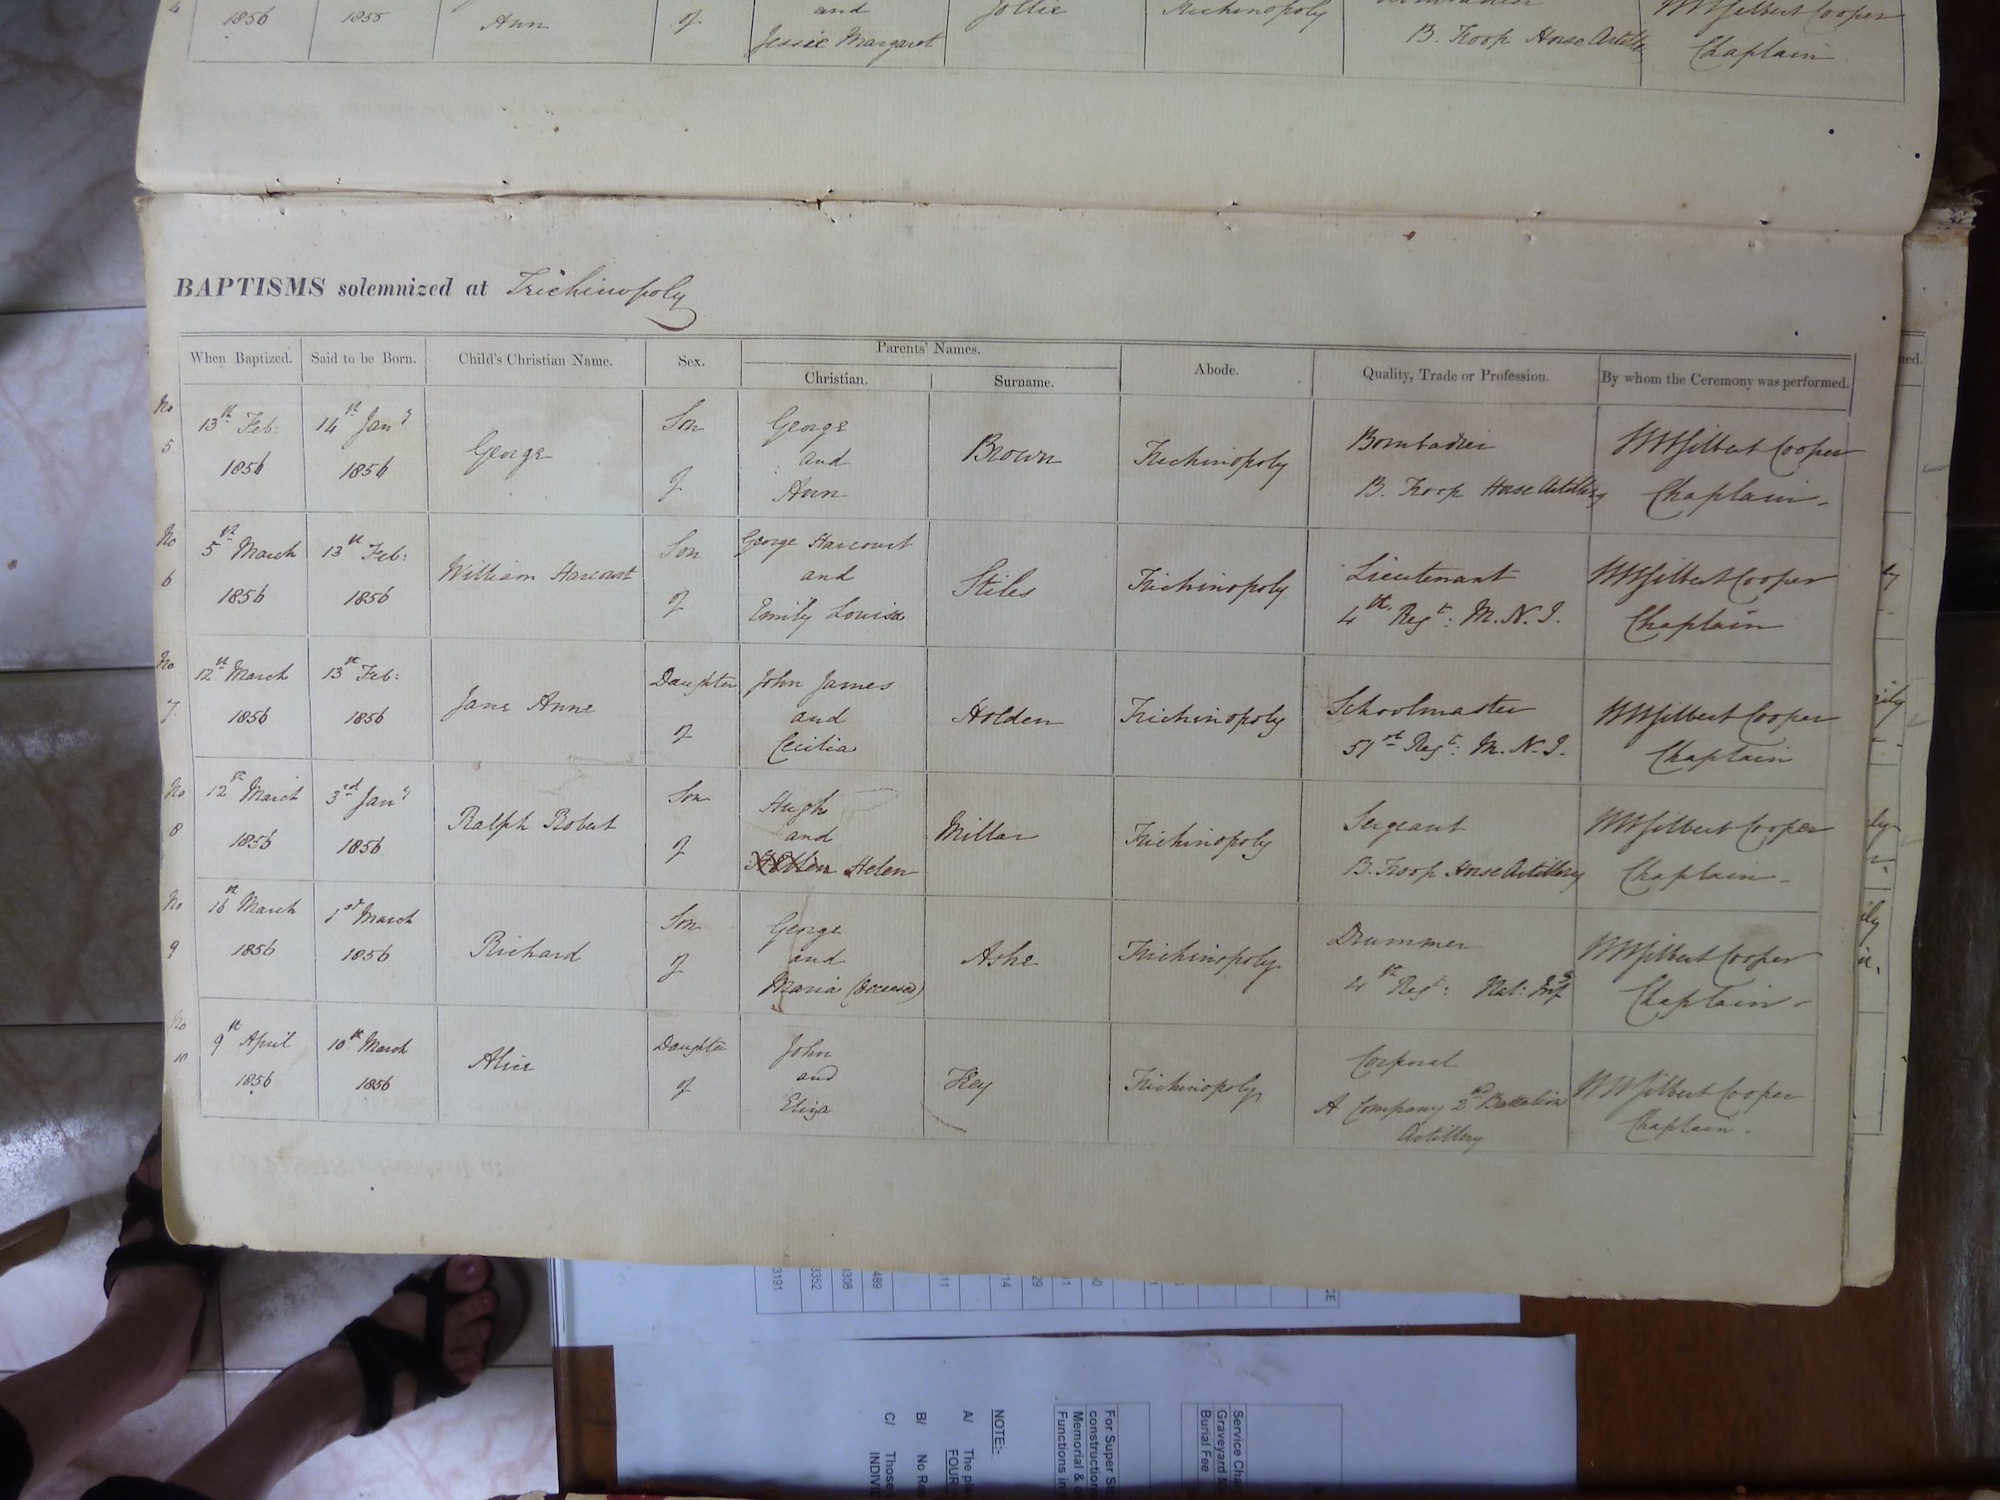 1856 1855 Ann of and Jollie Trichinopoly W W Gilbert Cooper
Jessie Margaret B. Troop Horse Artillery Chaplain
BAPTISMS solemnized at Trichinopoly
When Baptized. Said to be Born. Child's Christian Name. Sex. Parents' Names. Abode. Quality, Trade or Profession. By whom the Ceremony was performed.
Christian. Surname.
No 13th Feb: 14th Jany Son George Bombadier W W Gilbert Cooper
5 1856 1856 George of and Brown Trichinopoly
Ann B. Troop Horse Artillery Chaplain
No 5th March 13th Feb: Son George Harcourt Lieutenant W W Gilbert Cooper
6 1856 1856 William Harcourt of and Stiles Trichinopoly
Emily Louisa 4th Regt: M. N. I. Chaplain
No 12th March 13th Feb: Daughter John James Schoolmaster W W Gilbert Cooper
7 1856 1856 Jane Anne of and Holden Trichinopoly
Cecilia 51st Regt: M. N. I. Chaplain
No 12th March 3rd Jany Son Hugh Sergeant W W Gilbert Cooper
8 1856 1856 Ralph Robert of and Millar Trichinopoly
Helen B. Troop Horse Artillery Chaplain
No 16th March 1st March Son George Drummer W W Gilbert Cooper
9 1856 1856 Richard of and Ashe Trichinopoly
Maria (deceased) 4th Regt: Nat: Infy Chaplain
No 9th April 10th March Daughter John Corporal W W Gilbert Cooper
10 1856 1856 Alice of and Key Trichinopoly A Company 2nd Battalion
Eliza Artillery Chaplain.
3191
3352
3308
489
11
14
29
Service Cha
Graveyard M
Burial Fee
For Super S
construction
Memorial &
Functions in
NOTE:-
A/ The p
FOUR
B/ No Re
C/ Those
INDIVI